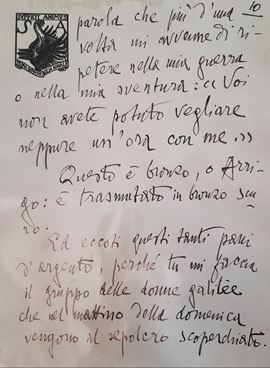 SVFFICIT ANIMVS
10
parola che più d'una
volta mi avvenne di ri-
petere nella mia guerra
o nella mia sventura: « Voi
non avete potuto vegliare
neppure un'ora con me. »
Questo è bronzo, o Arri-
go: è trasmutato in bronzo scu-
ro.
Ed eccoti questi santi pani
d'argento, perché tu mi faccia
il gruppo delle donne galilée
che nel mattino della domenica
vengono il sepolcro scoperchiato.